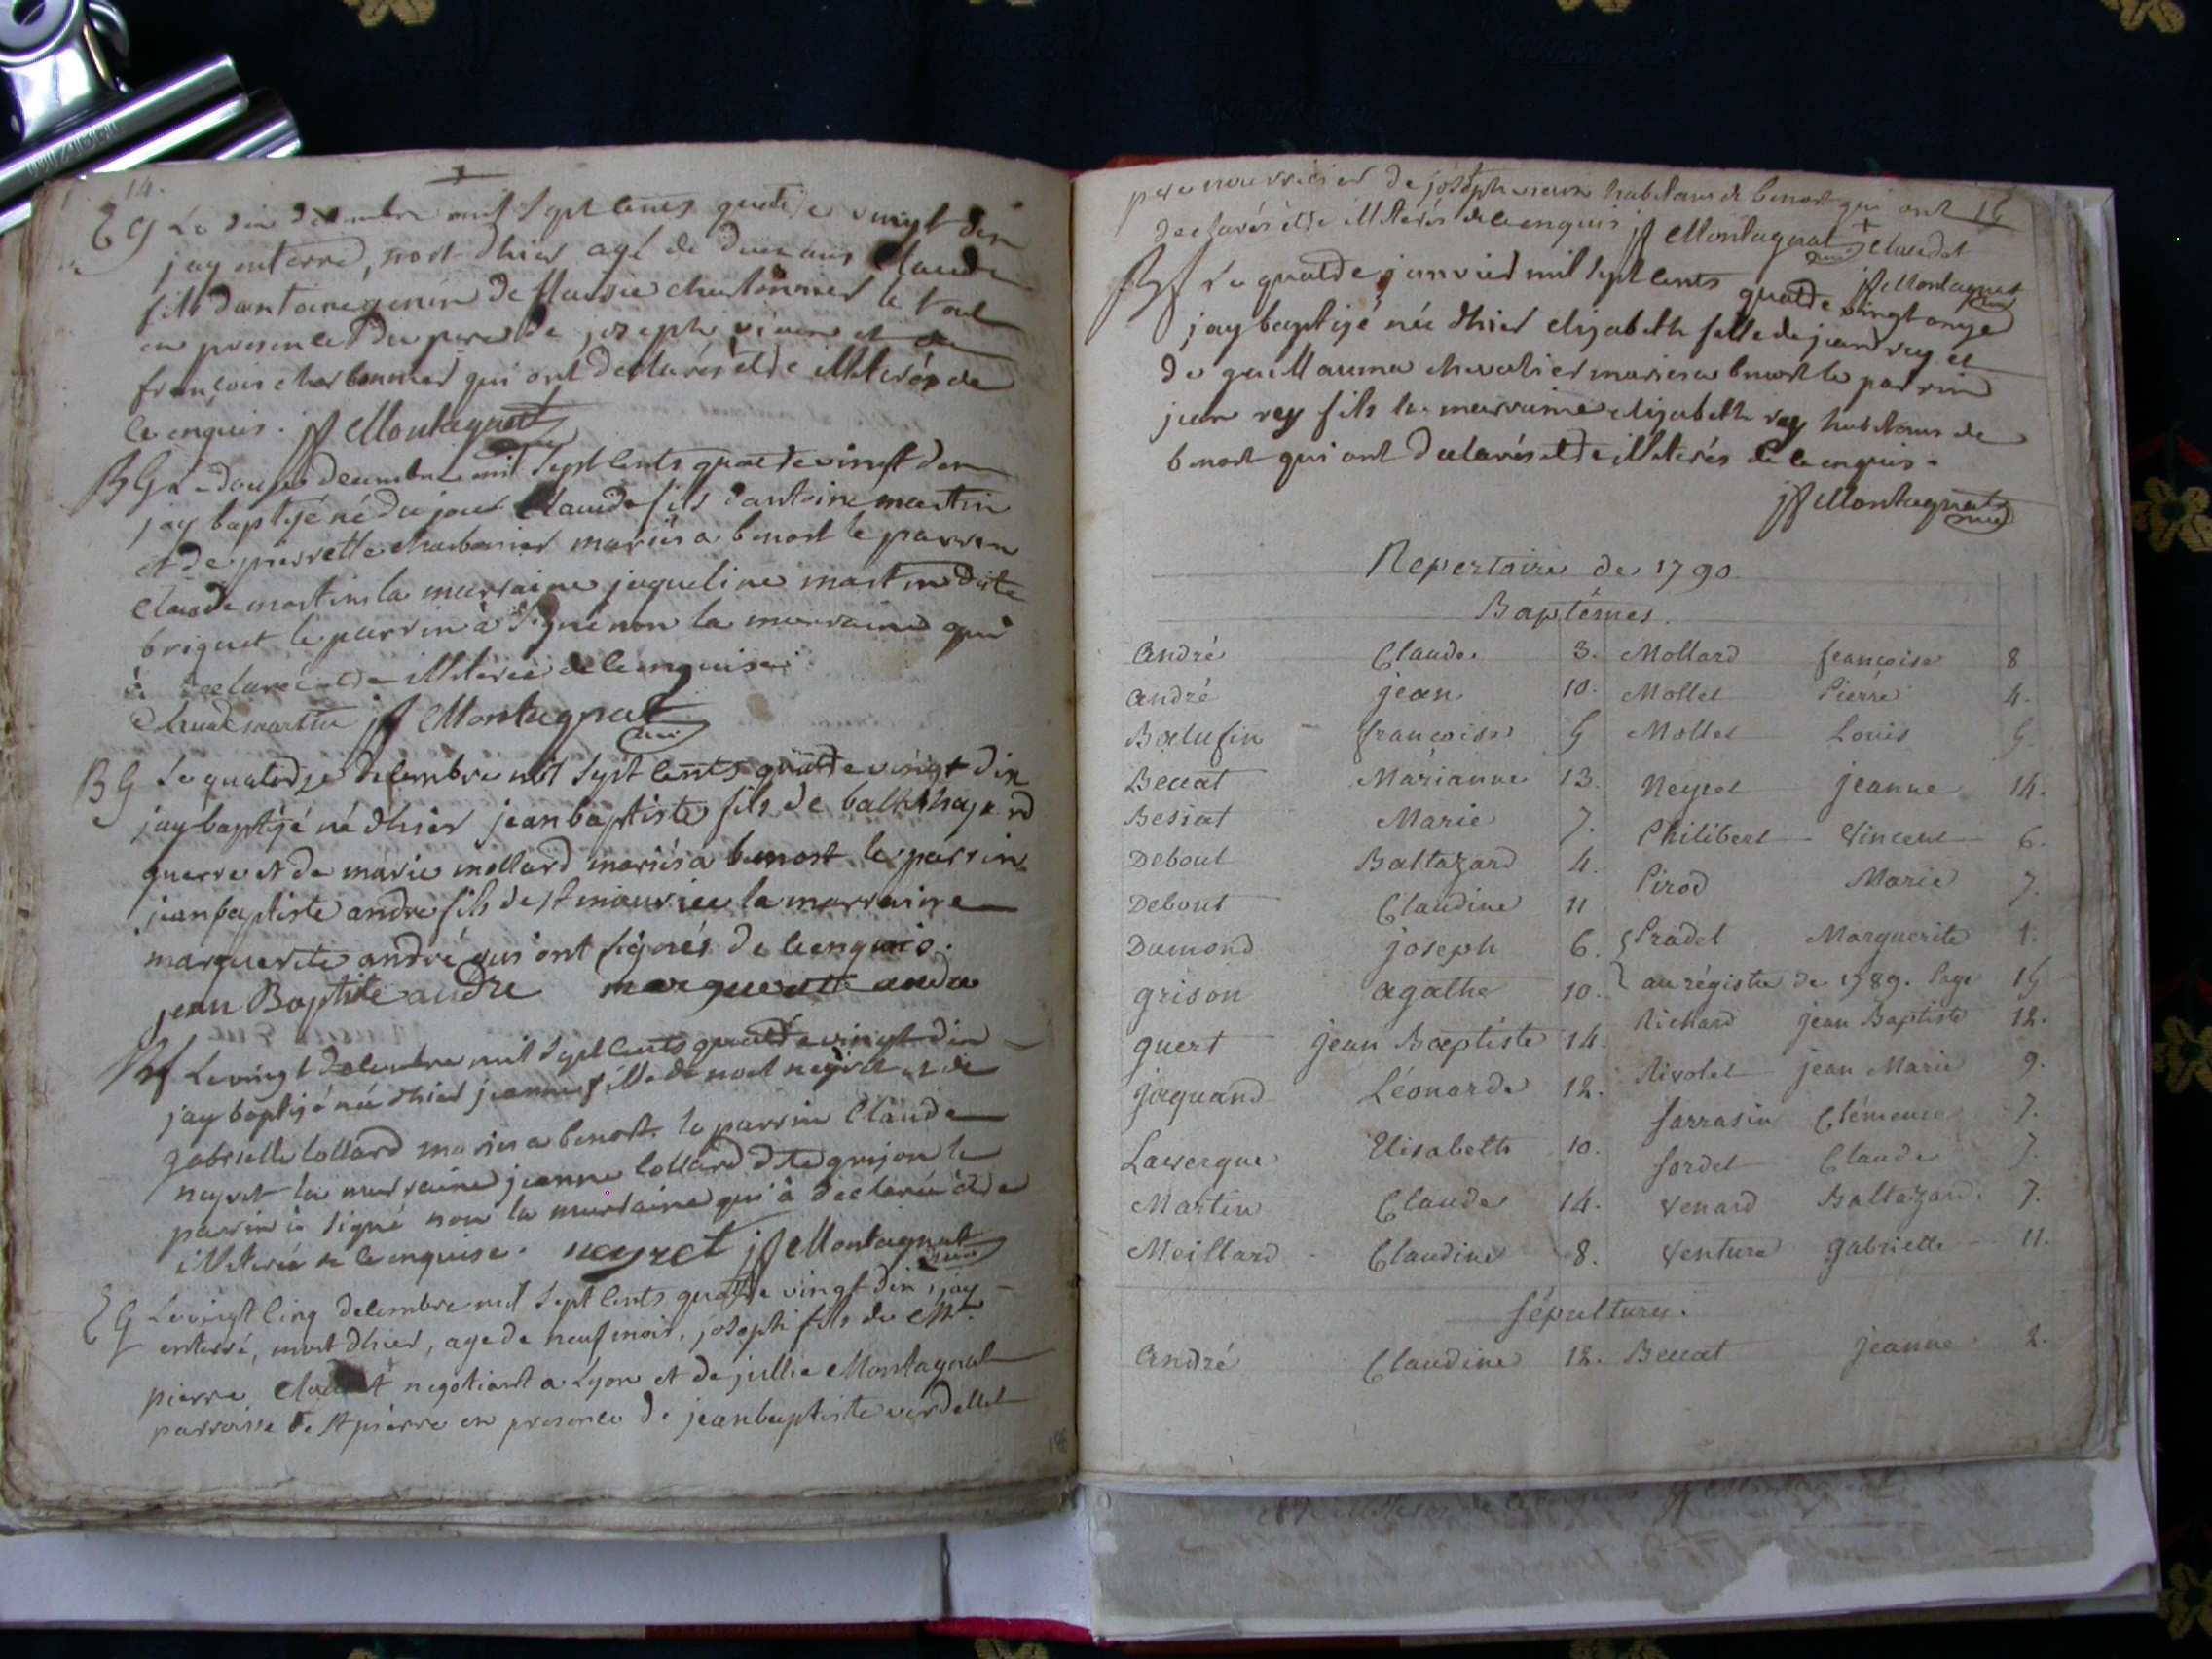 14.
EG Le dix décembre mil sept cents quatre vingt dix
jay enterré, mort dhier agé de deux ans Claude
fils dantoine genin de et de charbonnier le tout
en presence du pere de joseph et de
françois charbonnier qui ont declarés etre illiterés de
ce enquis. jf Montagnat curé
BG Le douze decembre mil sept cents quatre vingt dix
jay baptisé né du jour Claude fils dantoine martin
et de pierrette charbonier mariés a benost le parrin
Claude martin la marraine jaqueline martin dite
briquet le parrin à signé non la marraine qui
à declaré etre illiterée de ce enquise.
Claude martin jf Montagnat curé
BG Le quatorze decembre mil sept cents quatre vingt dix
jay baptisé né dhier jean baptiste fils de balthazard
guerre et de marie mollard mariés a benost le parrin
jean baptiste andre fils de st maurice la marraine
marguerite andré qui ont signés de ce enquis.
jean Baptiste andre marguerite andre
Bf Le vingt decembre mil sept cents quatre vingt dix
jay baptisé née dhier jeanne fille de noel neyret et de
gabrielle collard mariés a benost. le parrin Claude
neyret la marraine jeanne collard dite grison le
parrin à signé non la marraine qui à declarée etre
illiterée de ce enquise. neyret jf Montagnat curé
EG Le vingt cinq decembre mil sept cents quatre vingt dix, jay
enterré, mort dhier, age de neuf mois, joseph fils de Mr.
pierre Claudet negotiant a Lyon et de jullie Montagnat
parroisse de St pierre en presence de jean baptiste verdellet
pere nourricier de joseph neveux habitans de benost qui ont 15
declarés etre illiterés de ce enquis jf Montagnat curé + Claudet
jf Montagnat curé
Bf Le quatre janvier mil sept cents quatre vingt onze
jay baptisé née dhier elizabeth fille de jean rey et
de guillauma chevalier mariés a benost le parrin
jean rey fils la marraine elizabeth rey habitans de
benost qui ont declarés etre illiterés de ce enquis.
jf Montagnat curé
Repertoire de 1790
Baptêmes.
André Claude. 3. Mollard francoise 8
André jean 10. Mollet Pierre 4.
Balufin francoise 5 Mollet Louis 5
Beccat Marianne 13. Neyret jeanne 14.
Bessiat Marie 7. Philibert Vincent 6.
Debout Baltazard 4. Pirod Marie 7.
Debout Claudine 11
Dumond joseph 6. Pradel Marguerite 1.
grison agathe 10. au régistre de 1789. Page 15
guert jean Baptiste 14. Richard jean Baptiste 12.
jaquand Léonarde 12. Rivolet jean Marie 9.
Lavergne Elisabeth 10. Sarrasin Clémence 7.
Martin Claude 14. Sordet Claude 7.
Meillard Claudine 8. Venard Baltazard. 7.
Venture gabrielle 11.
Sépultures.
André Claudine 12. Beccat jeanne 2.